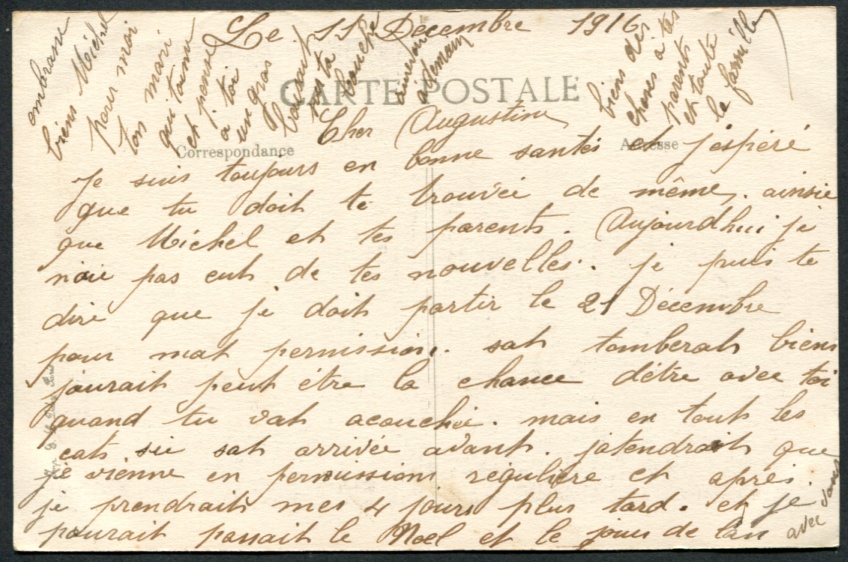 Le 11 Décembre 1916
CARTE POSTALE
Correspondance
Adresse
Cher Augustine
Je suis toujours en bonne santés et j'espéré
que tu doit te trouvée de même, ainsie
que Michel et tes parents. Aujourdhui je
naie pas eut de tes nouvelles. je puis te
dire que je doit partir le 21 Décembre
pour mat permission. sat tomberat biens
jaurait peut étre la chance détre avec toi
quand tu vat acouchée. mais en tout les
cats sie sat arrivée avant. jatendrait que
je vienne en permissions régulière et aprés.
je prendrait mes 4 jours plus tard. et je
pourait passait le Noel et le jours de lan
avec vous
embrasse
biens Michel
pour moi
ton mari
qui taime
et pense
a toi
un gros
sur ta
bouche
a demain
biens dés
choses a tes
parents
et toute
la famille